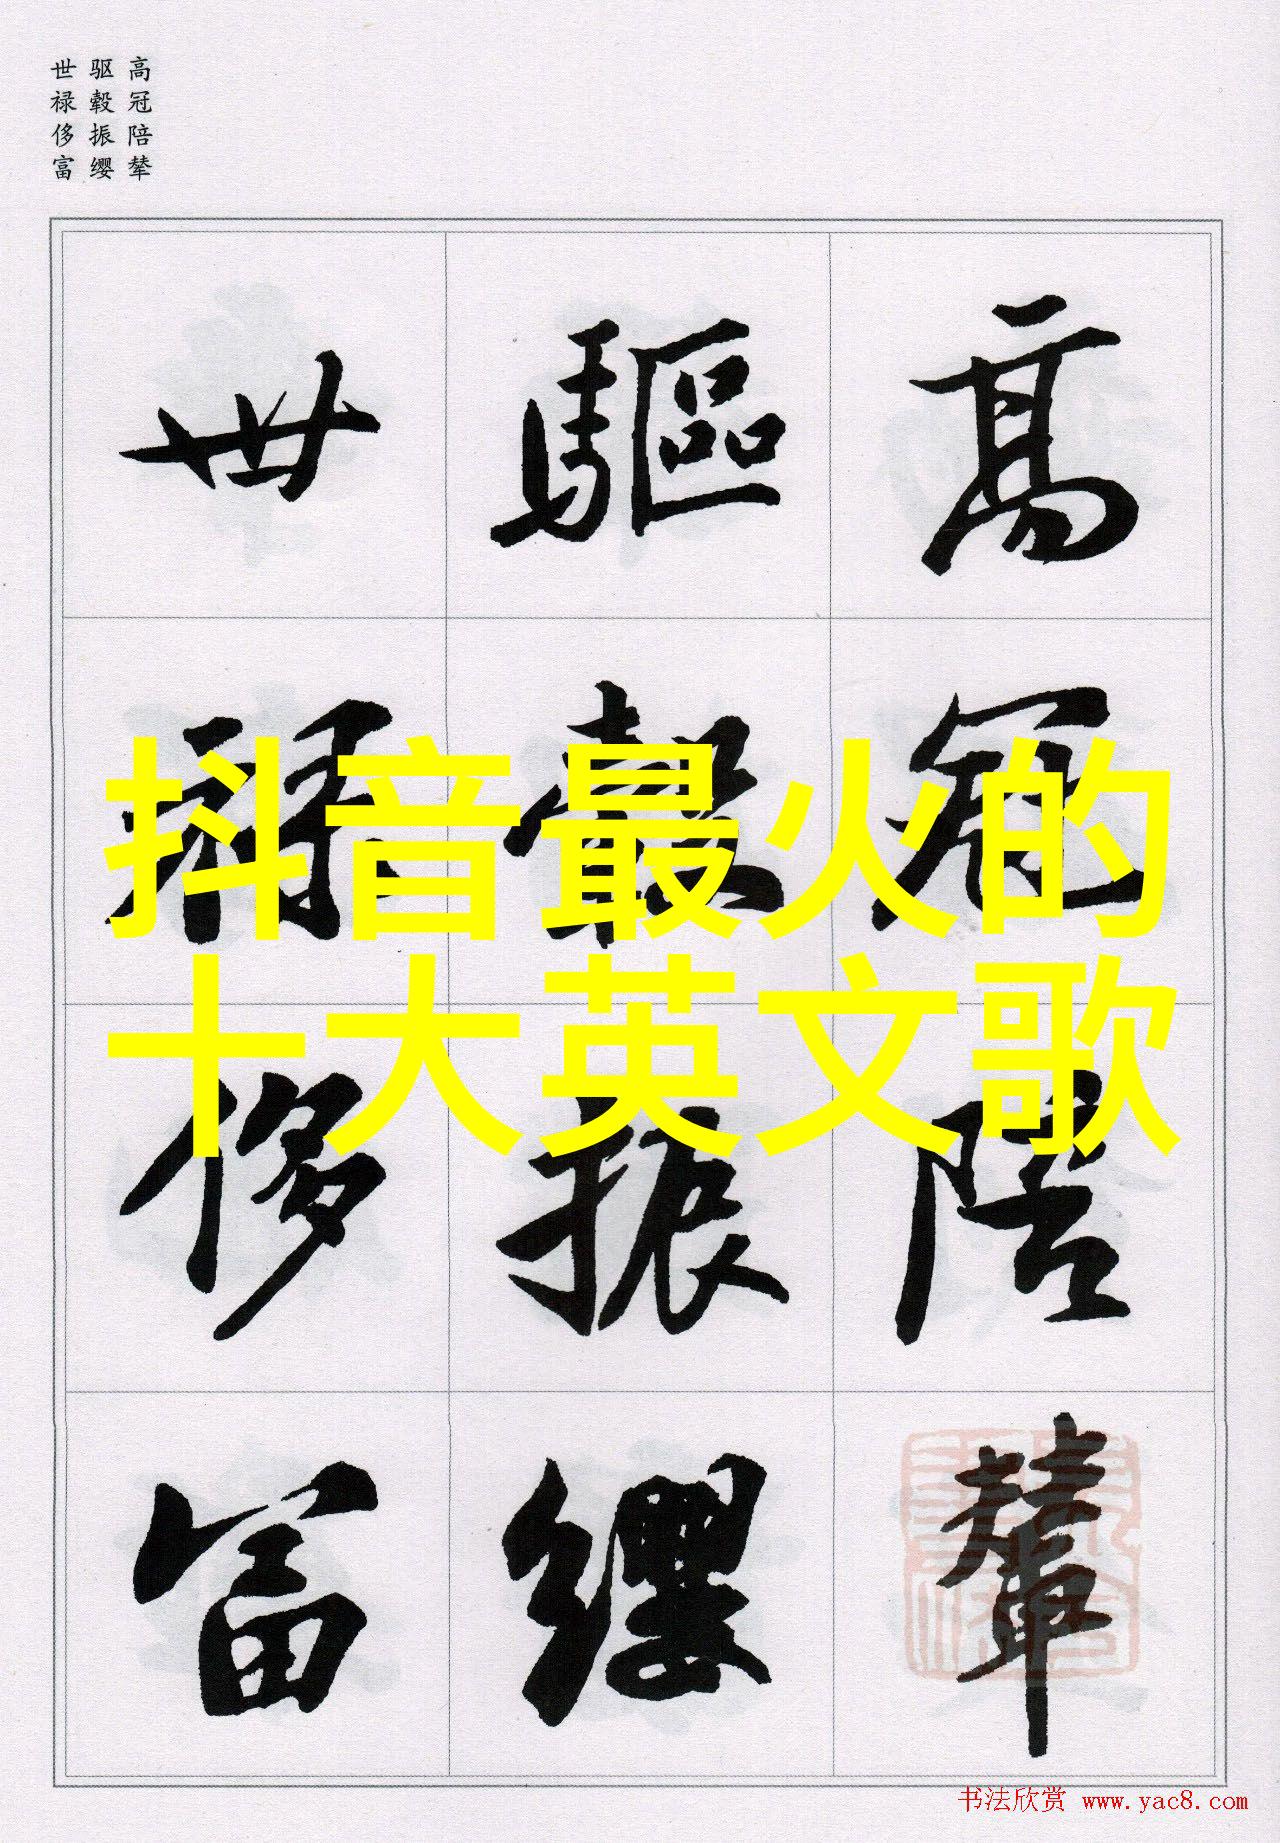 高冠陪辇
驱毂振缨
世禄侈富
高冠陪輦
驅轂振纓
世禄侈富
抖音最火的
十大英文歌
书法欣赏 www.yac8.com